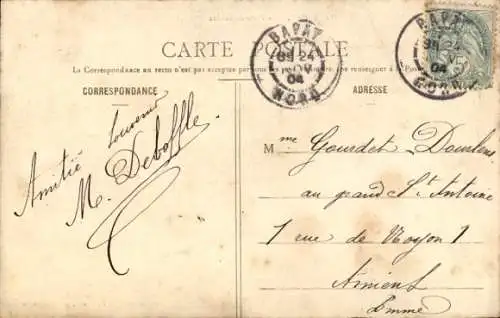 CARTE POSTALE
La Correspondance au recto n'est pas acceptée par tous les pays
CORRESPONDANCE
ADRESSE
BAVAY
24
04
NORD
BAVAY
24
04
NORD
Amitié souvenir
M. Deboffle
Mme Gourdet-Dourlens
au grand St Antoine
1 rue de Noyon 1
Amiens
Somme